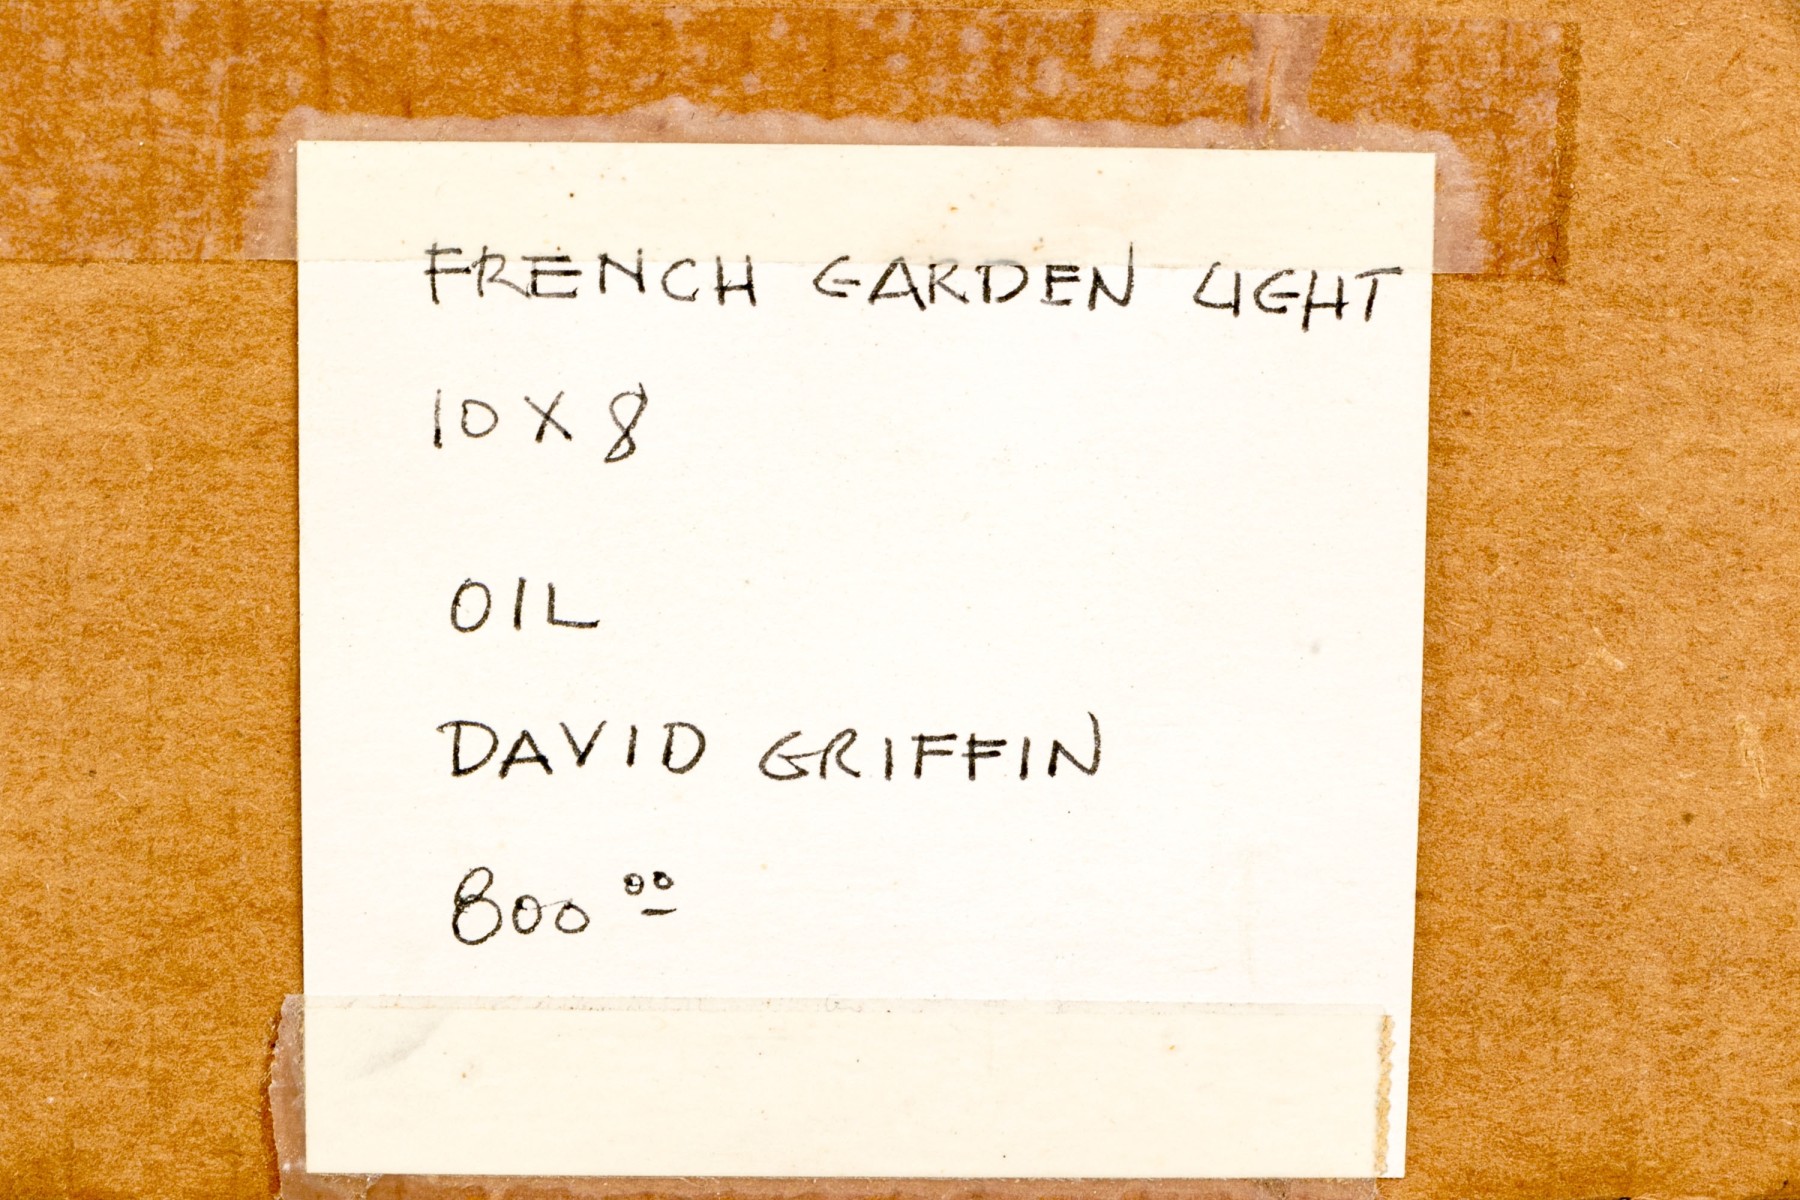 FRENCH GARDEN LIGHT
10 X 8
OIL
DAVID GRIFFIN
800 00